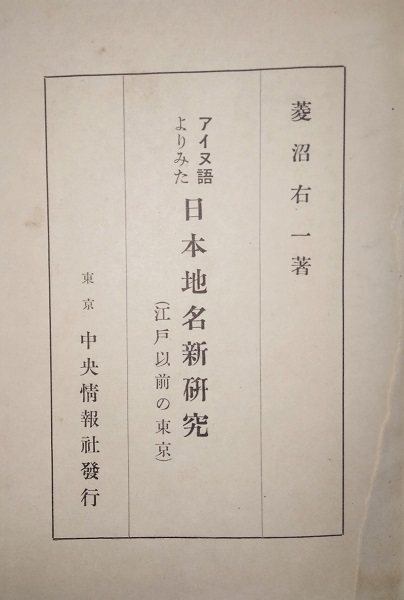 菱沼右一著
アイヌ語
よりみた
日本地名新研究
(江戸以前の東京)
東京
中央情報社發行